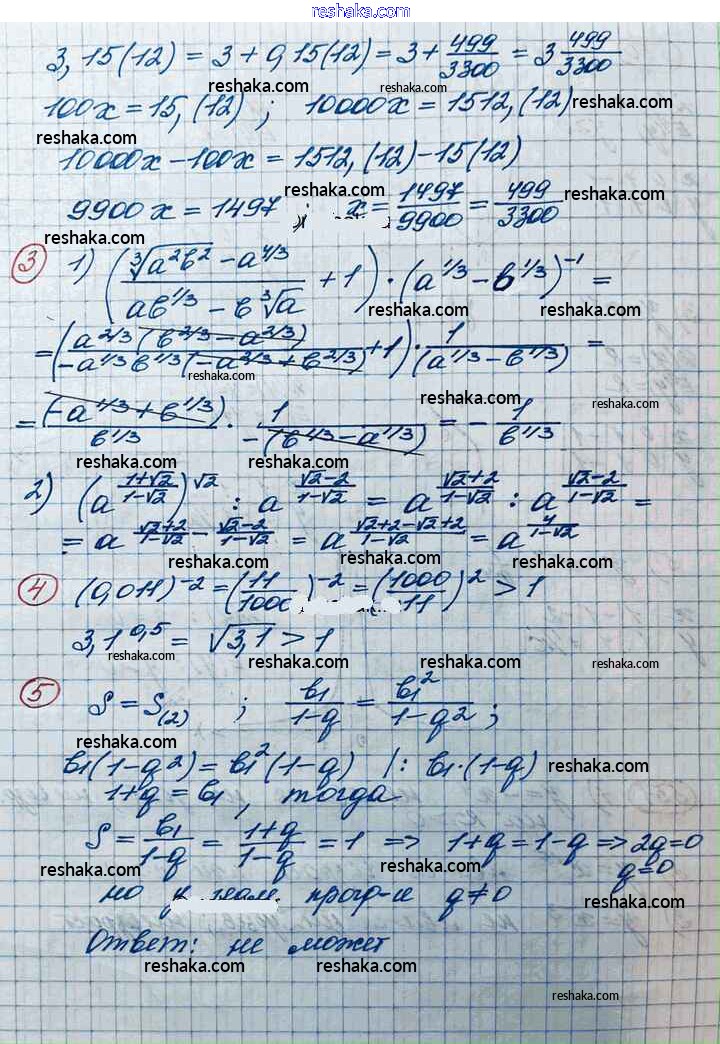 reshaka.com
3,15(12) = 3 + 0,15(12) = 3 + 499/3300 = 3 499/3300
reshaka.com reshaka.com
100x = 15,(12) ; 10000x = 1512,(12) reshaka.com
reshaka.com
10000x - 100x = 1512,(12) - 15(12)
reshaka.com reshaka.com
9900x = 1497 ; x = 1497/9900 = 499/3300
reshaka.com reshaka.com
③ 1) ((∛(a²b²) - a^(4/3))/(ab^(1/3) - b∛a) + 1) · (a^(1/3) - b^(1/3))^(-1) =
reshaka.com reshaka.com
= ((a^(2/3)(b^(2/3) - a^(2/3)))/(-a^(1/3)b^(1/3)(-a^(2/3) + b^(2/3))) + 1) · 1/(a^(1/3) - b^(1/3)) =
reshaka.com
= (-a^(1/3) + b^(1/3))/b^(1/3) · 1/(-(b^(1/3) - a^(1/3))) = - 1/b^(1/3)
reshaka.com reshaka.com
2) (a^((1+√2)/(1-√2)))^√2 : a^((√2-2)/(1-√2)) = a^((√2+2)/(1-√2)) : a^((√2-2)/(1-√2)) =
reshaka.com reshaka.com
= a^((√2+2)/(1-√2) - (√2-2)/(1-√2)) = a^((√2+2-√2+2)/(1-√2)) = a^(4/(1-√2))
reshaka.com reshaka.com reshaka.com
④ (0,011)^(-2) = (11/1000)^(-2) = (1000/11)² > 1
reshaka.com reshaka.com
3,1^0,5 = √3,1 > 1
reshaka.com reshaka.com reshaka.com reshaka.com
⑤ S = S(2) ; b1/(1-q) = b1²/(1-q2) ;
reshaka.com reshaka.com reshaka.com
b1(1-q2) = b1²(1-q) |: b1·(1-q) reshaka.com
1+q = b1, тогда
reshaka.com reshaka.com
S = b1/(1-q) = (1+q)/(1-q) = 1 => 1+q = 1-q => 2q=0
reshaka.com reshaka.com q=0
но у геом. прог-и q≠0
reshaka.com reshaka.com
Ответ: не может
reshaka.com reshaka.com reshaka.com
reshaka.com